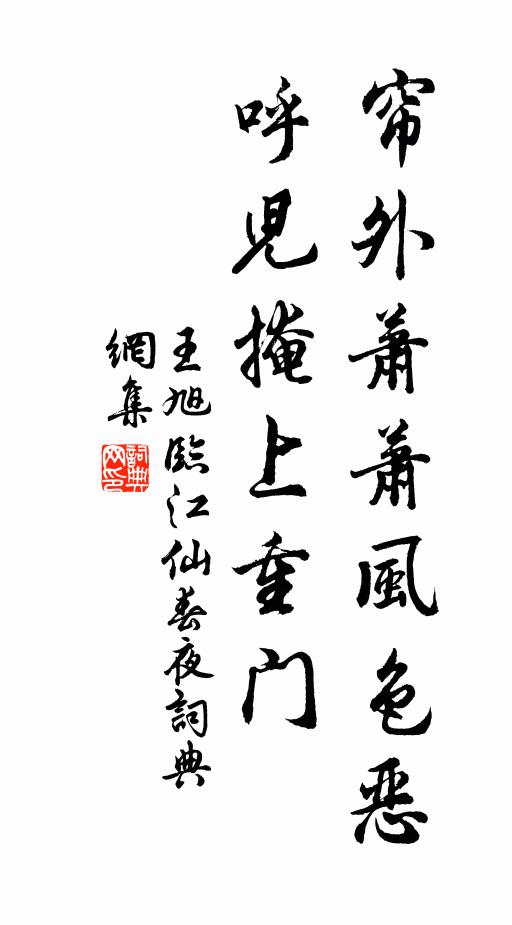 帘外蕭蕭風色恶
呼兒掩上重門
王旭臨江仙春夜詞典
網集
詞典
网印